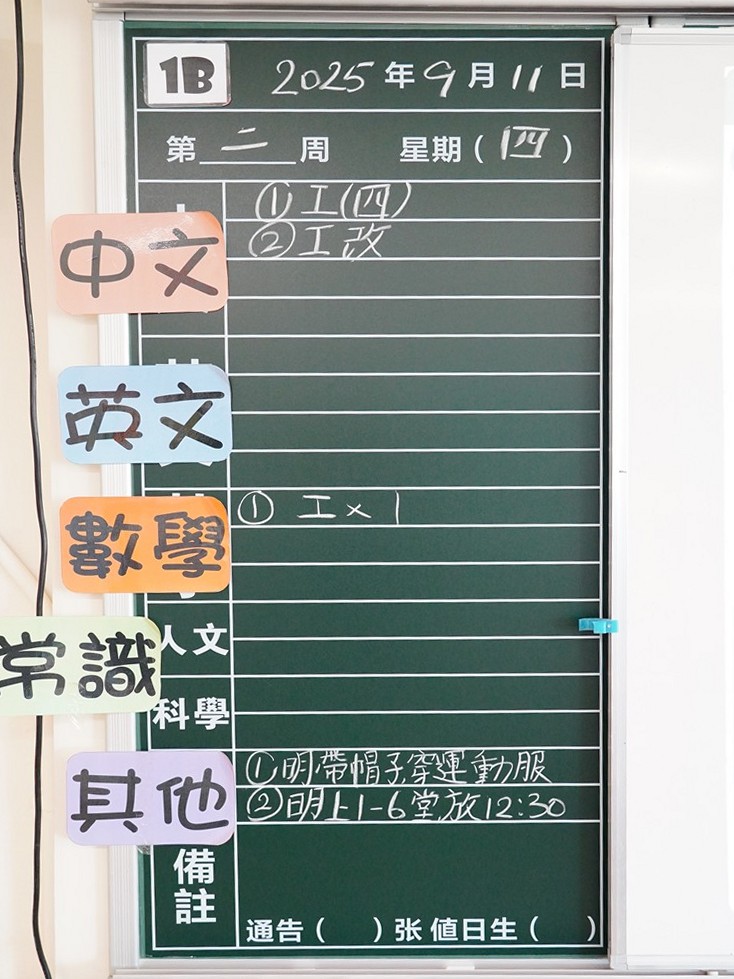 1B 2025年9月11日
第二周 星期(四)
①工(四)
中文 ②工改
英文
數學 ① 工×1
人文
常識
科學
其他 ①明帶帽子穿運動服
②明上1-6堂放12:30
備註
通告( )张 值日生( )